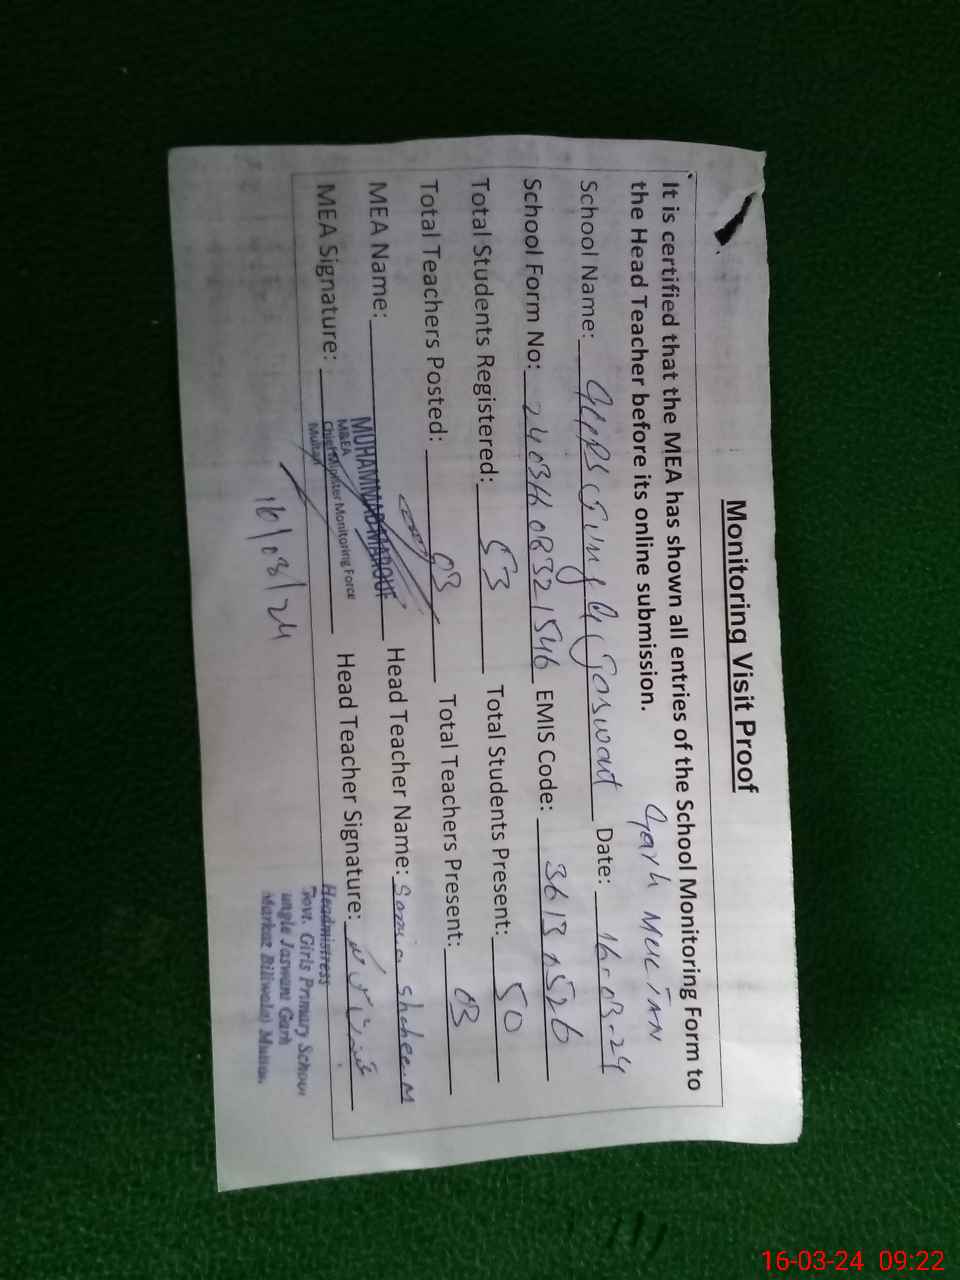 Monitoring Visit Proof
It is certified that the MEA has shown all entries of the School Monitoring Form to
the Head Teacher before its online submission.
Garh MULTAN
School Name: GGPS Jungle Jaswant Date: 16-03-24
School Form No: 24031608321546 EMIS Code:
Total Students Registered: 53 Total Students Present: 50
Total Teachers Posted: 03 Total Teachers Present: 03
MEA Name: MUHAMMAD MAROUF Head Teacher Name: Samia Shaheen
M&EA
Chief Minister Monitoring Force
Multan
MEA Signature: Head Teacher Signature:
16/03/24
Headmistress
Govt. Girls Primary School
ungle Jaswant Garh
Markaz Multan.
16-03-24 09:22